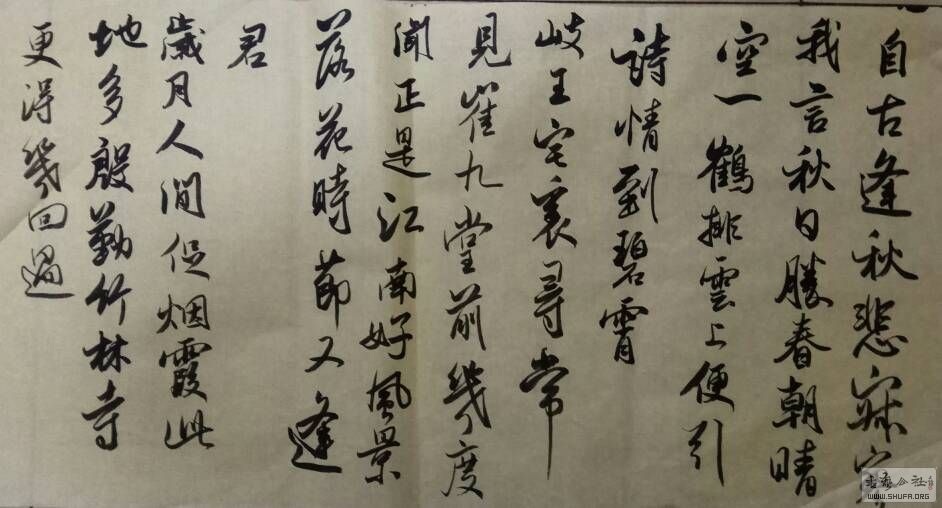 自古逢秋悲寂寥
我言秋日勝春朝晴
空一鶴排雲上便引
詩情到碧霄
岐王宅裏尋常
見崔九堂前幾度
聞正是江南好風景
落花時節又逢
君
歲月人間促烟霞此
地多殷勤竹林寺
更得幾回過
WWW.SHUFA.ORG